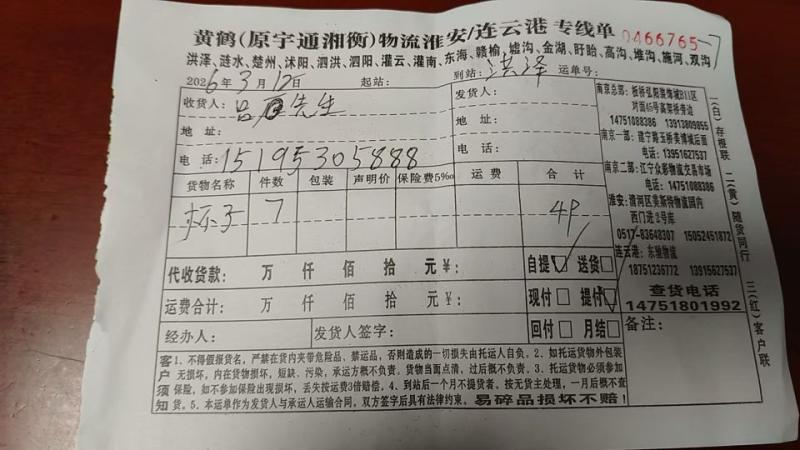 黄鹤(原宇通湘衡)物流淮安/连云港专线单
0466765
洪泽、涟水、楚州、沭阳、泗洪、泗阳、灌云、灌南、东海、赣榆、墟沟、金湖、盱眙、高沟、堆沟、施河、双沟
2026年3月12日 起站: 到站:洪泽 运单号:
收货人:吕 先生 发货人:
地 址: 地 址:
电 话:15195305888 电 话:
货物名称 件数 包装 声明价 保险费5‰ 运 费 合 计
杯子 7
代收货款: 万 仟 佰 拾 元¥: 自提 送货
运费合计: 万 仟 佰 拾 元¥: 现付 提付
经办人: 发货人签字: 回付 月结
南京总部:板桥弘阳装饰城B11区
对面45号高架桥旁边
14751088386 13913809855
南京一部:建宁路玉桥美博城后面
电话:13951627537
南京二部:江宁众彩物流交易市场
电话:14751088386
淮安:清河区美斯特物流园内
西门进2号库
0517-83648307 15052451872
连云港:东驰物流
18751235772 13915627537
查货电话
14751801992
备注:
一(白)存根联 二(黄)随货同行 三(红)客户联
客户须知
1、不得假报货名,严禁在货内夹带危险品、禁运品,否则造成的一切损失由托运人自负。2、如托运货物外包装
无损坏,内在货物损坏,短缺、污染,承运方概不负责。货物当面点清,过后概不负责。3、托运货物必须参加
保险,如不参加保险出现损坏,丢失按运费3倍赔偿。4、到站后一个月不提货者,按无货主处理,一月后概不查
货。5、本运单作为发货人与承运人运输合同,双方签字后具有法律约束。易碎品损坏不赔!